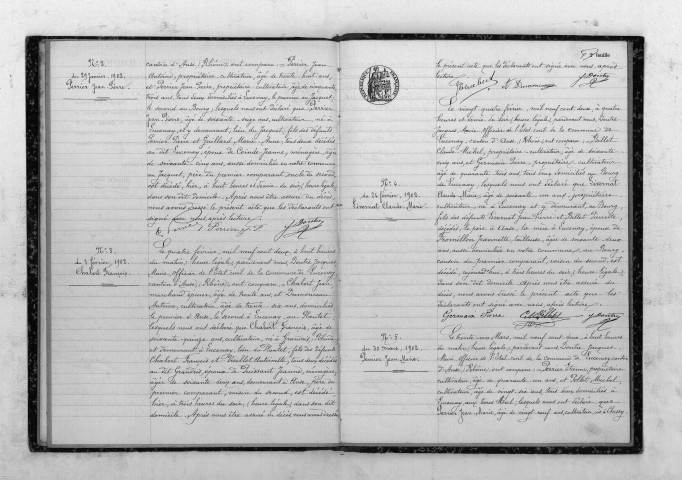 N° 2.
du 29 janvier 1902.
Perrier Jean Pierre.
canton d'Anse (Rhône) ont comparu : Perrier Jean
Antoine, propriétaire cultivateur, âgé de trente huit ans,
et Perrier Jean Pierre, propriétaire cultivateur, âgé de cinquante
trois ans tous deux domiciliés à Lucenay, le premier au Jacquet,
le second au Bourg, lesquels nous ont déclaré que Perrier
Jean Pierre, âgé de soixante seize ans, cultivateur, né à
Lucenay, et y demeurant, lieu du Jacquet, fils des défunts
Perrier Pierre et Guillard Marie Anne, tous deux décédés
au dit Lucenay, époux de Cointe Jeanne, ménagère, âgée
de soixante cinq ans, aussi domiciliée en notre commune
au Jacquet, père du premier comparant oncle du second
est décédé, hier, à huit heures et demie du soir, heure légale,
dans son dit domicile. Après nous être assuré du décès,
nous avons dressé le présent acte que les déclarants ont
signé avec nous après lecture.
Perrier
N° 3.
du 4 février, 1902.
Chabert François.
Le quatre février, mil neuf cent deux, à huit heures
du matin, heure légale, pardevant nous,
Marie, Officier de l'Etat civil de la commune de Lucenay
canton d'Anse, (Rhône), ont comparu, Chabert Jean
marchand épicier, âgé de trente ans et Dumonceau
Antoine, cultivateur, âgé de trente six ans, domiciliés
le premier à Anse, le second à Lucenay, au Plantet,
lesquels nous ont déclaré que Chabert François, âgé de
soixante quinze ans, cultivateur, né à
et demeurant à Lucenay, lieu du Plantet, fils des défunts
Chabert François et
au dit époux de Jeanne, ménagère,
âgée de soixante cinq ans, demeurant à Anse, père du
premier comparant, voisin du second, est décédé
hier, à trois heures du soir, (heure légale), dans son dit
domicile. Après nous être assuré du décès, nous avons dressé
feuille
le présent acte que les déclarants ont signé avec nous, après
lecture.
N° 4.
du 24 février, 1902.
Livernat Claude Marie.
Le vingt quatre février, mil neuf cent deux, à quatre
heures du soir, heure légale, pardevant nous,
Jacques Marie, Officier de l'Etat civil de la commune de
Lucenay, canton d'Anse, (Rhône), ont comparu : Pollet
Claude Michel, propriétaire cultivateur, âgé de soixante
cinq ans, et Germain Pierre, propriétaire cultivateur
âgé de quarante trois ans, tous deux domiciliés au Bourg
de Lucenay, lesquels nous ont déclaré que Livernat
Claude Marie, âgé de soixante un ans, propriétaire
cultivateur, né à Lucenay et y demeurant au Bourg,
fils des défunts Livernat Jean Pierre et Pollet Pierrette,
décédés, le père à Anse, la mère à Lucenay, époux de
Jeannette, tailleuse, âgée de soixante deux
ans aussi domiciliée en notre commune, au Bourg,
cousin du premier comparant, voisin du second, est
décédé, aujourd'hui, à trois heures du soir, (heure légale),
dans son dit domicile. Après nous être assuré du
décès, nous avons dressé le présent acte que les
déclarants ont signé avec nous, après lecture.
Germain Pierre
N° 5.
du 30 mars, 1902.
Perrier Jean Marie.
Le trente mars, mil neuf cent deux, à huit heures
du matin, heure légale, pardevant nous, Jacques
Marie, Officier de l'Etat civil de la commune de Lucenay, canton
d'Anse, (Rhône), ont comparu : Perrier Etienne, propriétaire
cultivateur, âgé de quarante ans, et Pollet Michel,
cultivateur, âgé de vingt six ans tous deux domiciliés à
Lucenay lesquels nous ont déclaré que
Perrier Jean Marie, âgé de vingt neuf ans, cultivateur, né à Chessy